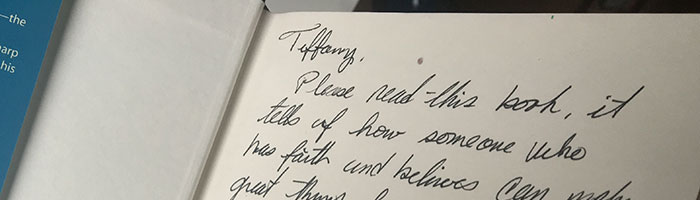 —the
arp
his
Tiffany,
Please read this book, it
tells of how someone who
has faith and believes can make
great things